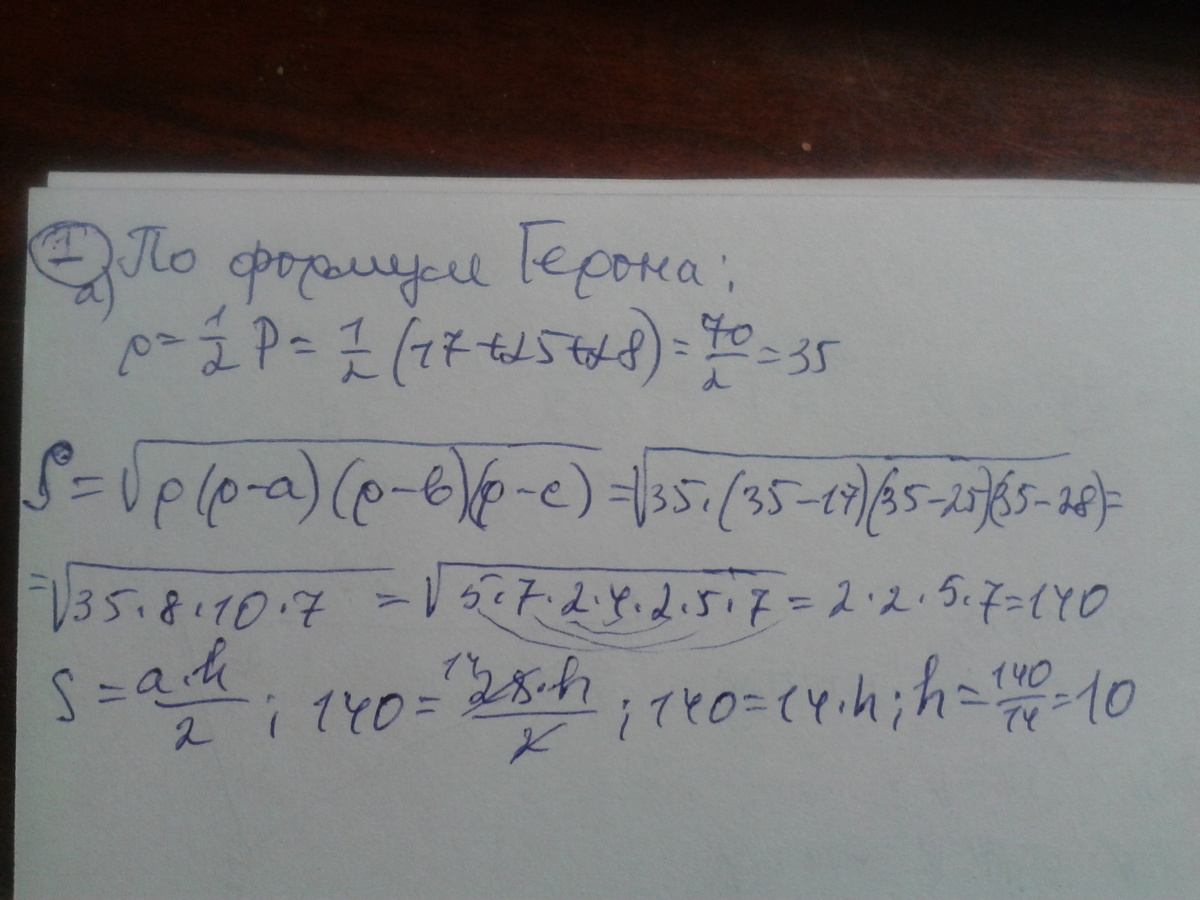 1 а) По формуле Герона:
p = 1/2 P = 1/2 (17+25+28) = 70/2 = 35
S = √p(p-a)(p-в)(p-c) = √35·(35-17)(35-25)(35-28) =
= √35·8·10·7 = √5·7·2·4·2·5·7 = 2·2·5·7=140
S = a·h/2 ; 140 = 14 28·h/2 ; 140=14·h ; h = 140/14 = 10